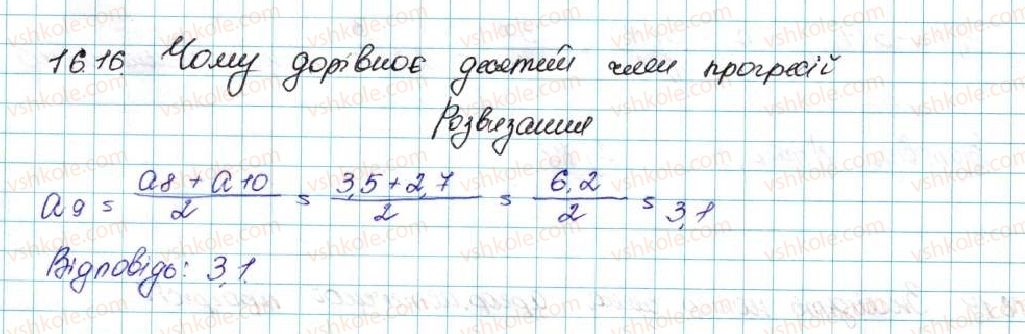 16.16. Чому дорівнює десятий член прогресій
Розвязання
a9 = a8 + a10 / 2 = 3,5 + 2,7 / 2 = 6,2 / 2 = 3,1
Відповідь: 3,1.